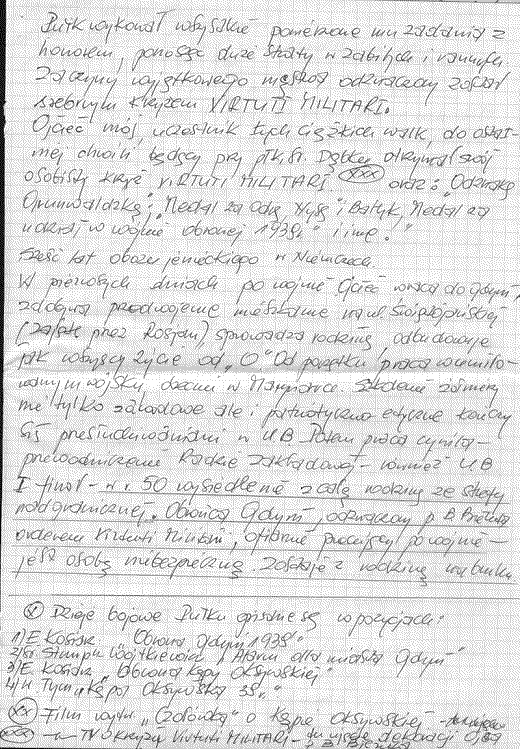 Pułk wykonał wszystkie powierzone mu zadania z
honorem, ponosząc duże straty w zabitych i rannych.
Za czyny wyjątkowego męstwa odznaczony został
srebrnym Krzyżem VIRTUTI MILITARI.
Ojciec mój, uczestnik tych ciężkich walk, do ostat-
niej chwili będący przy płk. St. Dąbku otrzymał swój
osobisty krzyż VIRTUTI MILITARI (xxx) oraz: Odznakę
Grunwaldzką; "Medal za Odrę, Nysę i Bałtyk, Medal za
udział w wojnie obronnej 1939r." i inne."
Sześć lat obozu jenieckiego w Niemczech.
W pierwszych dniach po wojnie Ojciec wraca do Gdyni,
zdobywa przedwojenne mieszkanie na ul. Świętojańskiej
(zajęte przez Rosjan) sprowadza rodzinę, odbudowuje
jak wszyscy życie od "0" Od początku praca w umiło-
wanym wojsku, u
w Szkolenie żołnierzy
nie tylko zawodowe ale i patriotyczno etyczne kończy
się prześladowaniami w UB Potem praca cywilna -
przewodniczenie Radzie Zakładowej - również UB
I finał - w r. 50 wysiedlenie z całą rodziną ze strefy
nadgranicznej. Obrońca Gdyni, odznaczony p. B. Bieruta
orderem Virtuti Militari, ofiarnie pracujący po wojnie -
jest osobą niebezpieczną. Zostaje z rodziną na bruku.
(x) Dzieje bojowe Pułku opisane są w pozycjach:
1) E Kosiarz "Obrona Gdyni 1939"
2) "Alarm dla miasta Gdyni"
3) E. Kosiarz "Obrona Kępy Oksywskiej"
4) W Tym "Kępa Oksywska 39r."
(xx) Film wojtu "(Zołówka" o Kępie Oksywskiej -
(xxx) - TV o Krzyżu Virtuti Militari - tu dekoracji Ojca